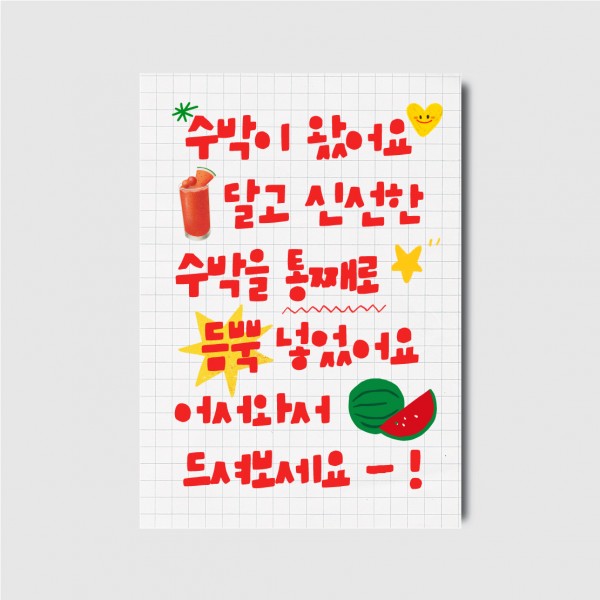 수박이 왔어요
달고 신선한
수박을 통째로
듬뿍 넣었어요
어서와서
드셔보세요 ー!